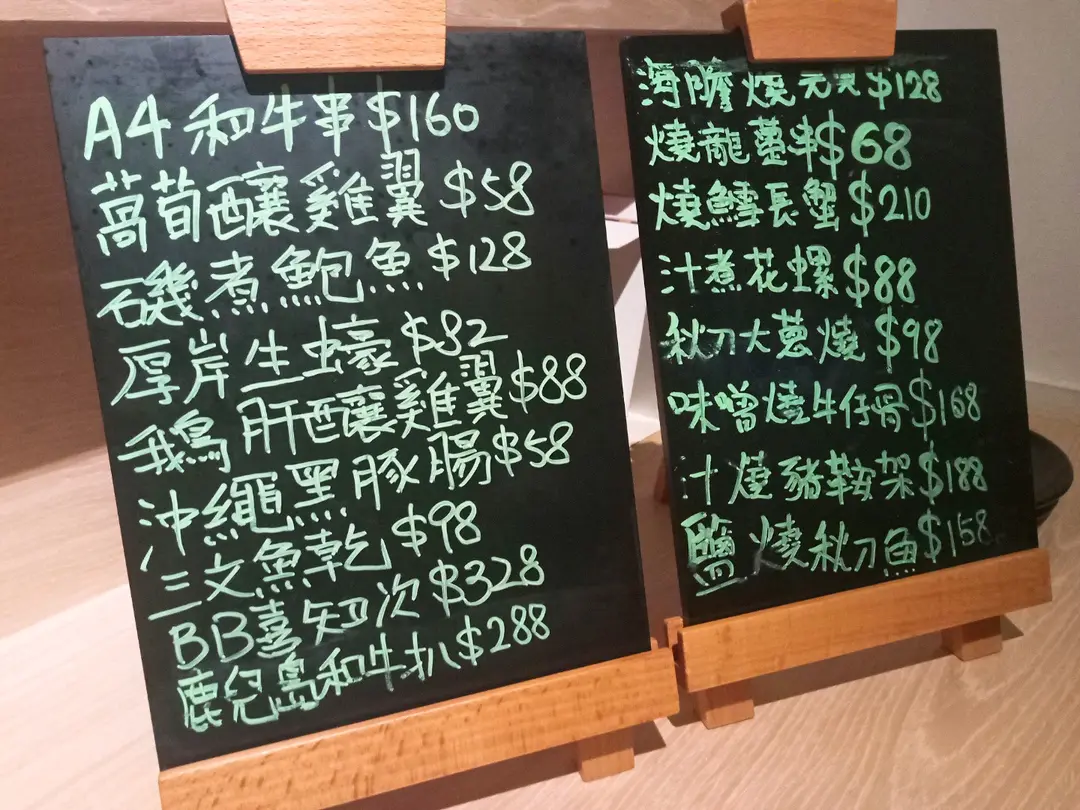 A4和牛串$160
萵荀釀雞翼$58
磯煮鮑魚$128
厚岸生蠔$32
鵝肝釀雞翼$88
沖繩黑豚腸$58
三文魚乾$98
BB喜知次$328
鹿兒島和牛扒$288
海膽燒元貝$128
燒龍薑串$68
燒鱈長蟹$210
汁煮花螺$88
秋刀大蔥燒$98
味噌燒牛仔骨$168
汁燒豬鞍架$188
鹽燒秋刀魚$158